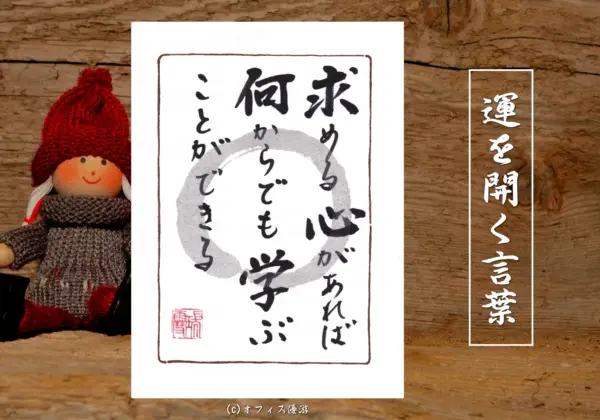 運を開く言葉
求める心があれば
何からでも学ぶ
ことができる
(c)オフィス優游